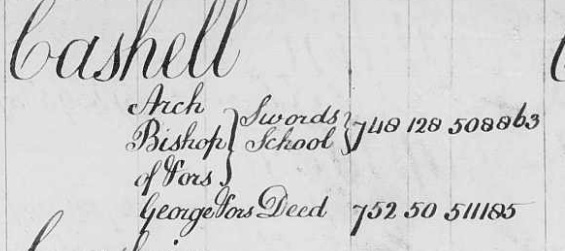 Cashell
Arch
Bishop } Swords } 748 128 508863
of Vors } School
George Vors Deed 752 50 511185